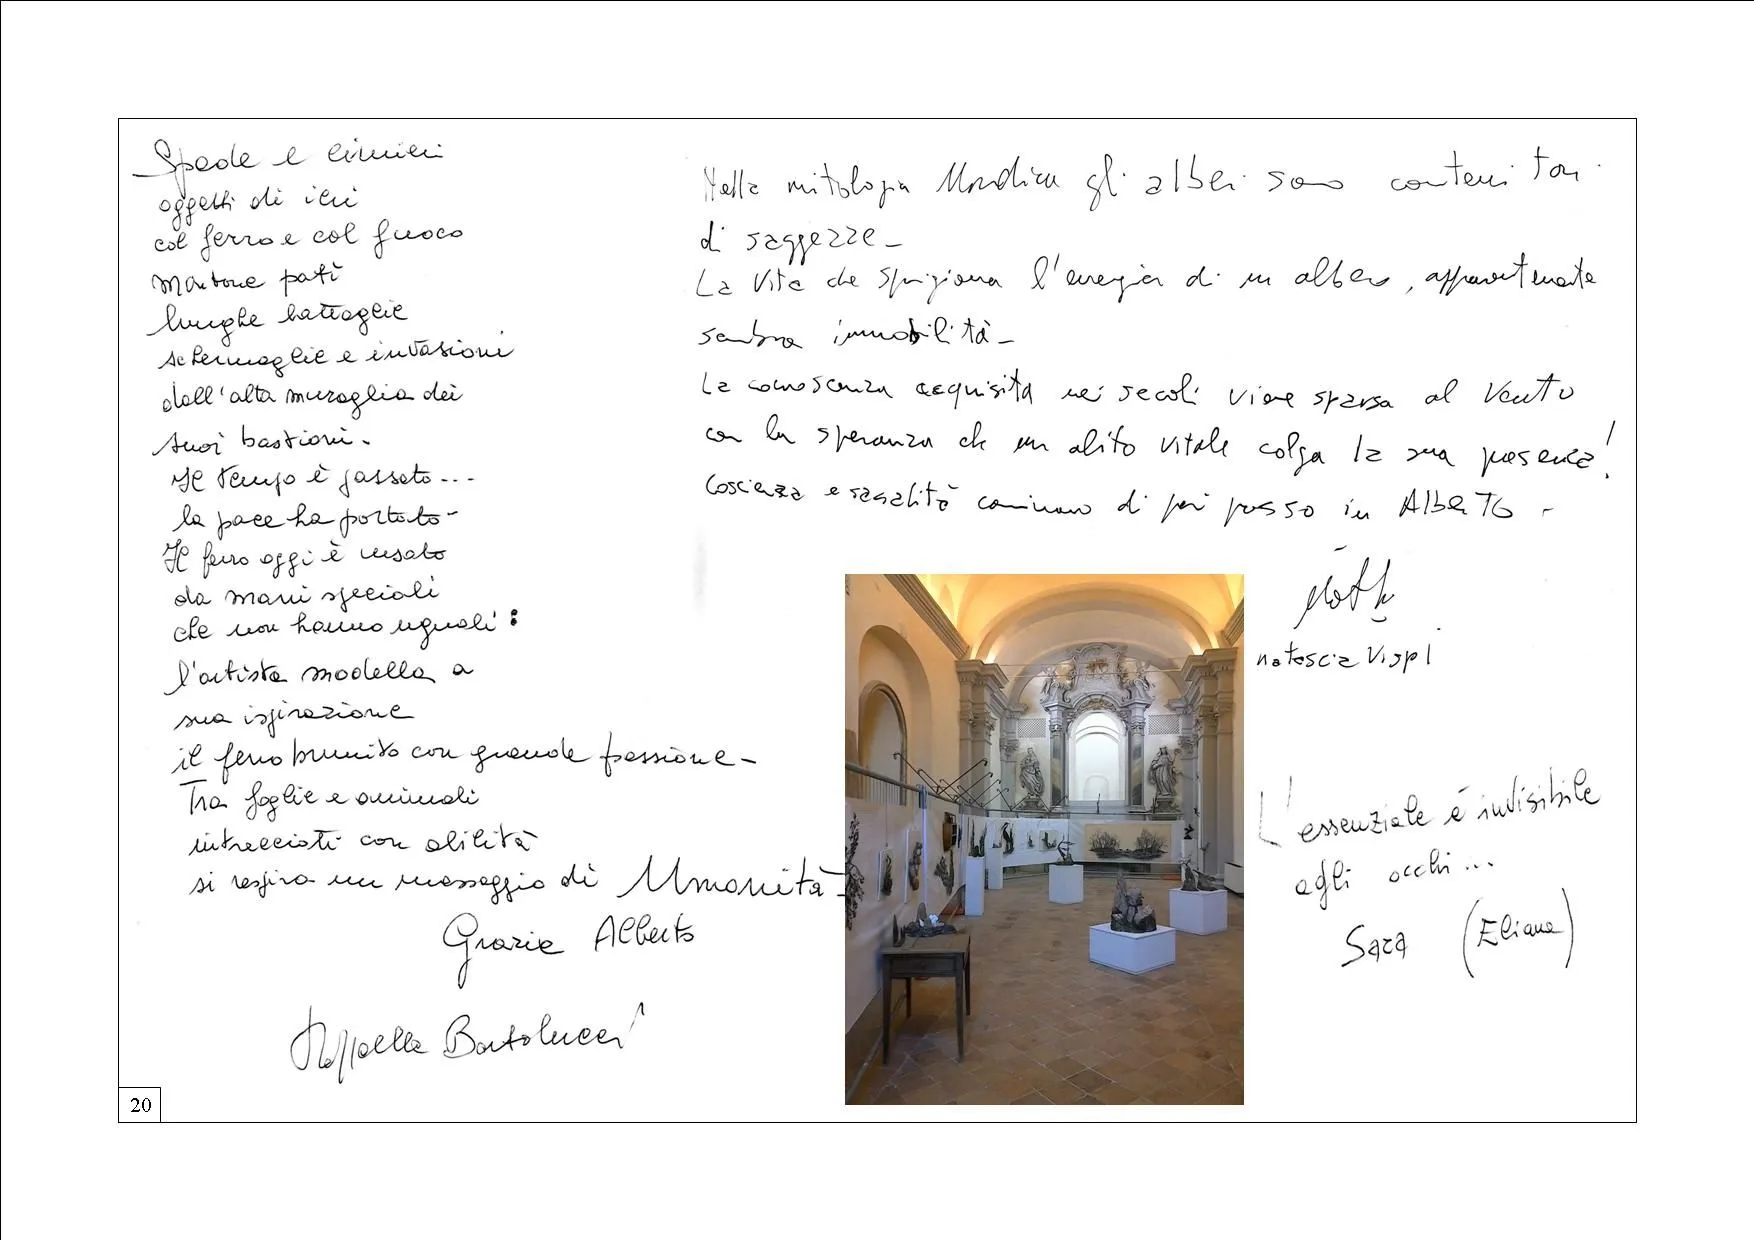 Spade e cimieri
oggetti di ieri
col ferro e col fuoco
Mentone patì
lunghe battaglie
schermaglie e invasioni
dall'alta muraglia dei
suoi bastioni.
Il tempo è passato...
la pace ha portato-
Il ferro oggi è usato
da mani speciali
che non hanno uguali:
l'artista modella a
sua ispirazione
il ferro brunito con grande passione-
Tra foglie e animali
intrecciati con abilità
si respira un messaggio di Umanità-
Grazie Alberto
Raffaella Bartolucci
Nella mitologia Nordica gli alberi sono contenitori
di saggezze-
La vita che sprigiona l'energia di un albero, apparentemente
sembra immobilità-
La conoscenza acquisita nei secoli viene sparsa al vento
con la speranza che un alito vitale colga la sua presenza!
Coscienza e sacralità camminano di pari passo in Alberto-
natascia Vispi
L'essenziale è invisibile
agli occhi...
Sara (Eliana)
20